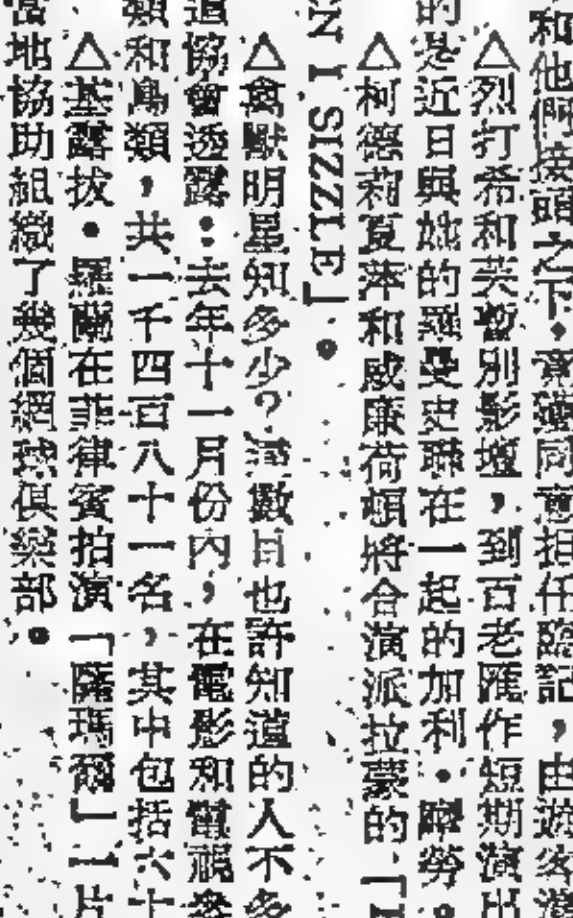 和他們接頭之下,齊獲同意担任臨記,由遊客
△烈打希和芙暫別影壇,到百老匯作短期演出
的是近日與她的羅曼史聯在一起的加利·勞。
△柯德莉夏萍和威廉荷頓將合演派拉蒙的「
N I SIZZLE」。
△禽獸明星知多少?數目也許知道的人不多
協會透露:去年十一月份內,在電影和電視
類和鳥類,共一千四百八十一名,其中包括六十
△基露拔·羅蘭在菲律賓拍演「薩瑪爾」一片
當地協助組織了幾個網球俱樂部。